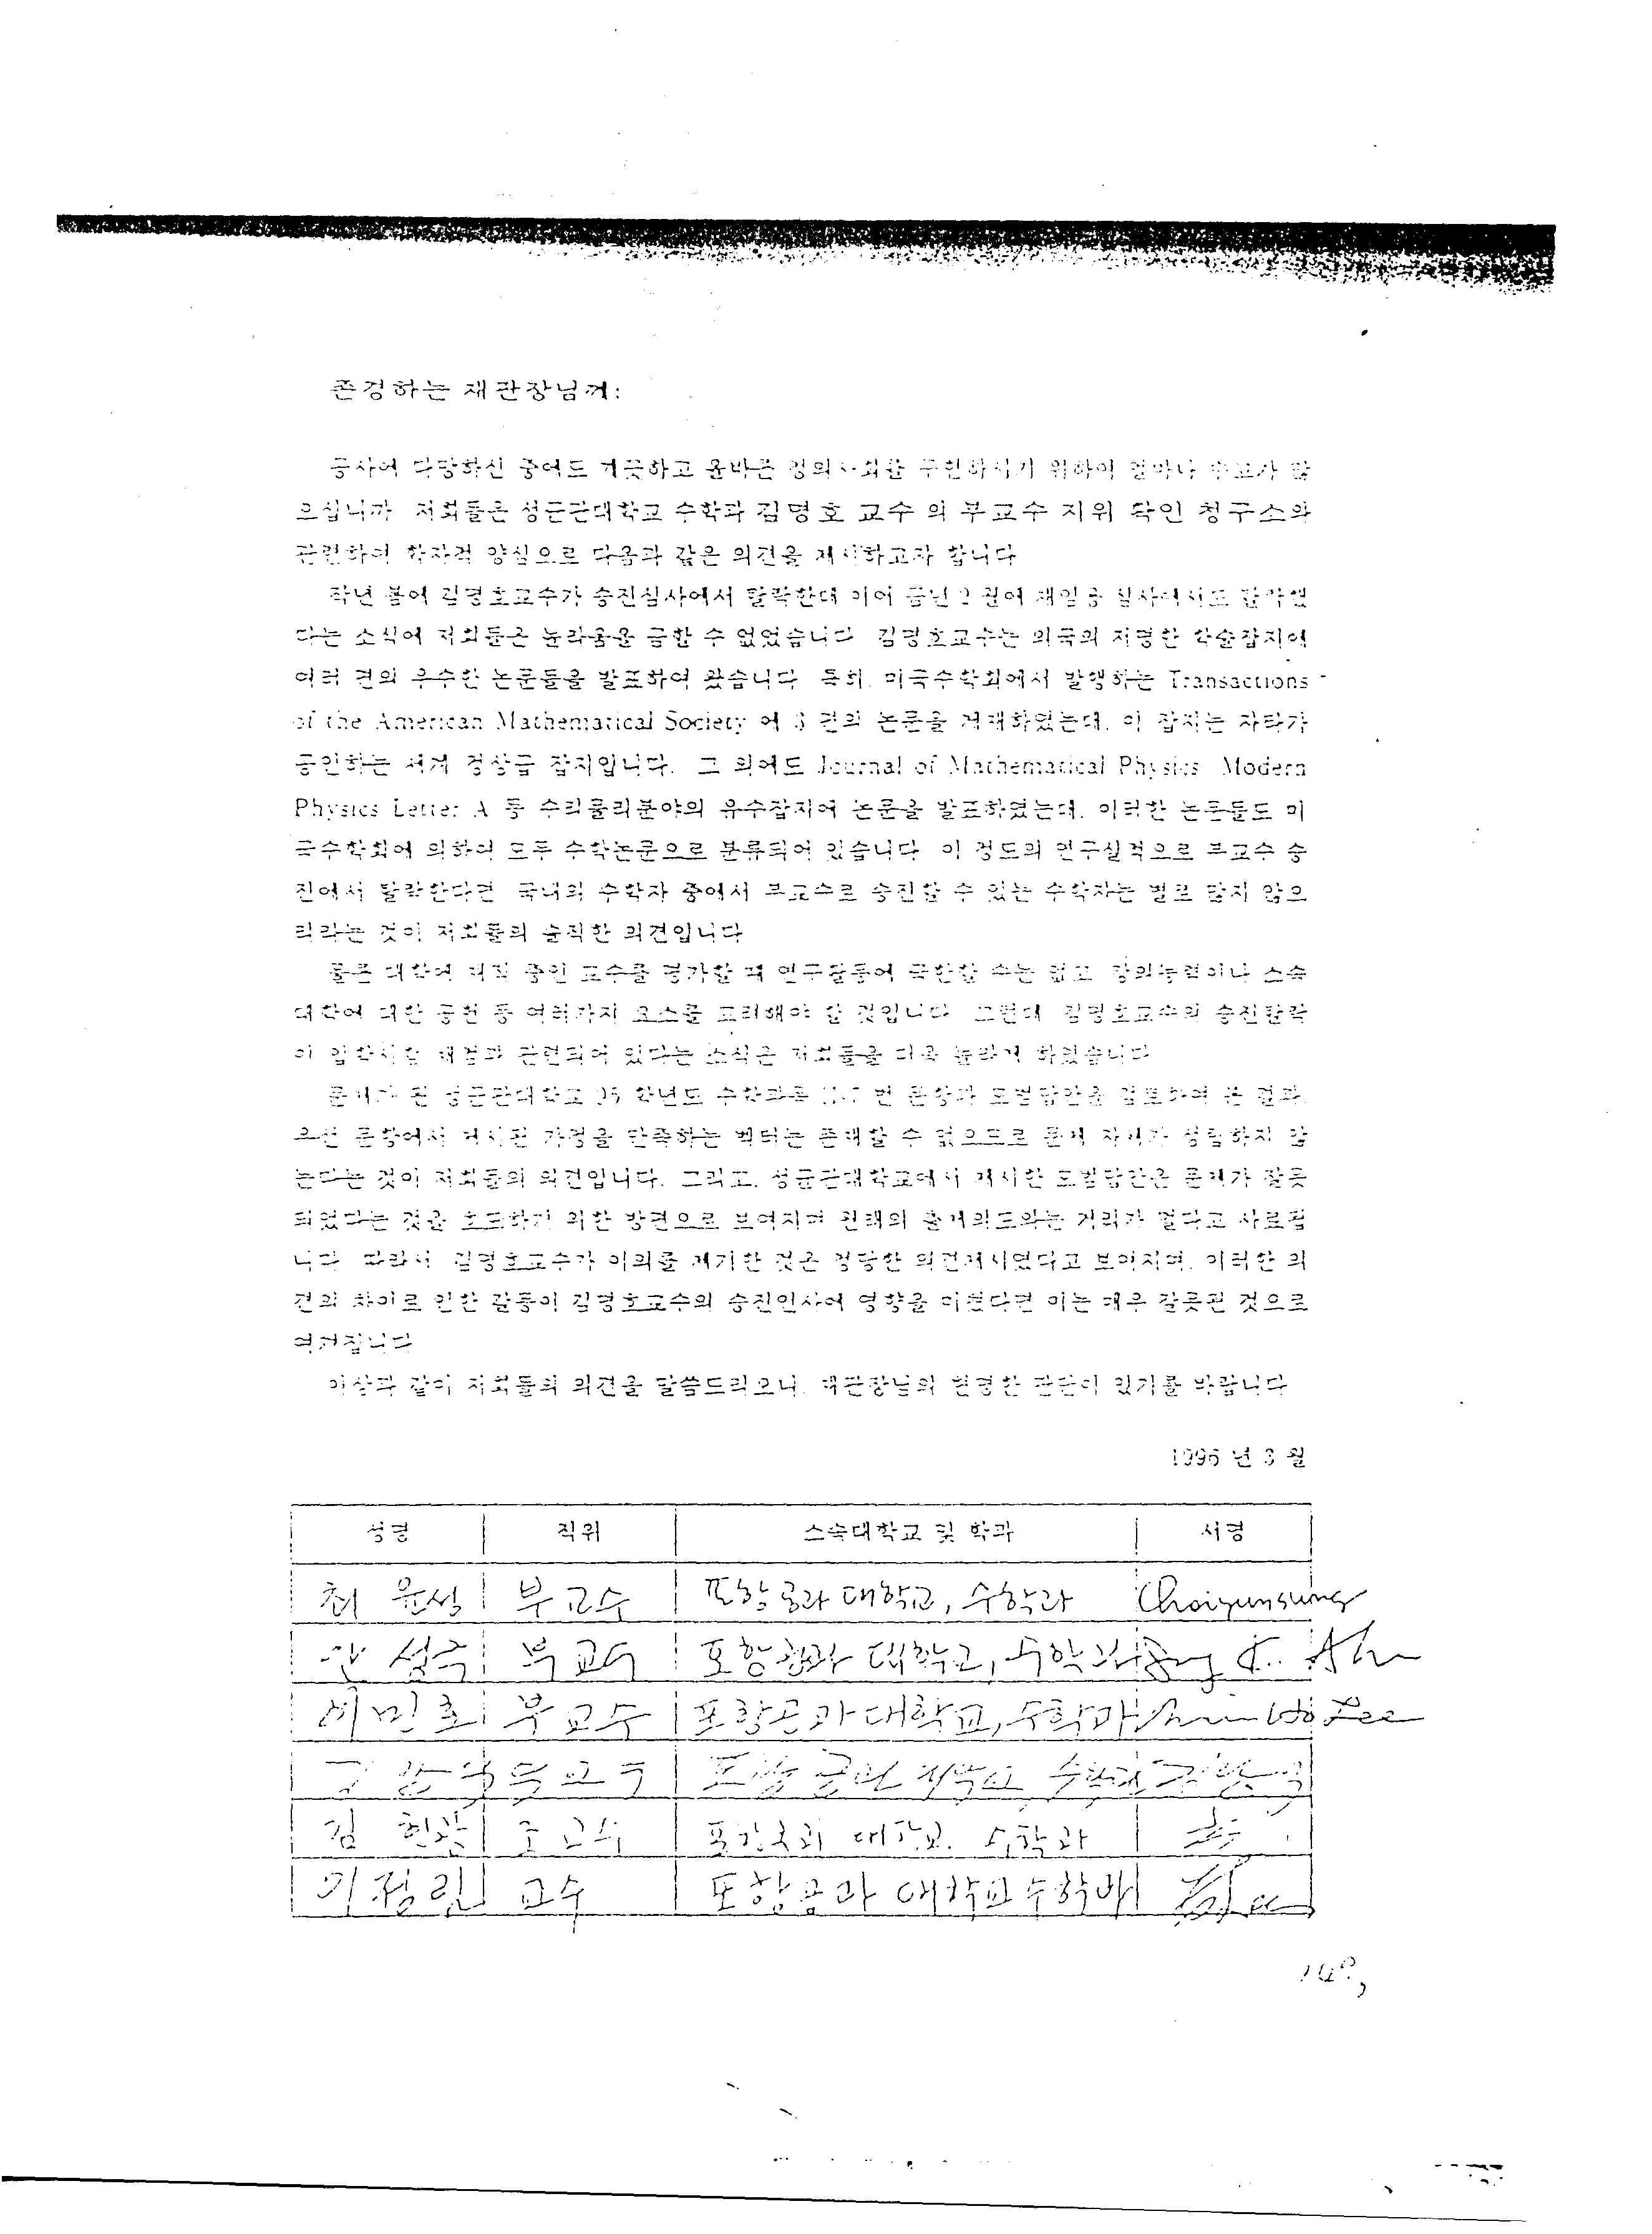 존경하는 재판장님께:
공사에 다망하신 중에도 깨끗하고 올바른 정의사회를 구현하시기 위하여 얼마나 수고가 많
으십니까 저희들은 성균관대학교 수학과 김명호 교수의 부교수 지위 확인 청구소와
관련하여 학자적 양심으로 다음과 같은 의견을 제시하고자 합니다
작년 봄에 김명호교수가 승진심사에서 탈락한데 이어 금년 2월에 재임용 심사에서도 탈락했
다는 소식에 저희들은 놀라움을 금할 수 없었습니다 김명호교수는 외국의 저명한 학술잡지에
여러 편의 우수한 논문들을 발표하여 왔습니다 특히, 미국수학회에서 발행하는 Transactions
of the American Mathematical Society 에 3 편의 논문을 게재하였는데, 이 잡지는 자타가
공인하는 세계 정상급 잡지입니다. 그 외에도 Journal of Mathematical Physics Modern
Physics Letter A 등 수리물리분야의 유수잡지에 논문을 발표하였는데, 이러한 논문들도 미
국수학회에 의하여 모두 수학논문으로 분류되어 있습니다 이 정도의 연구실적으로 부교수 승
진에서 탈락한다면 국내의 수학자 중에서 부교수로 승진할 수 있는 수학자는 별로 많지 않으
리라는 것이 저희들의 솔직한 의견입니다
물론 대학에 재직 중인 교수를 평가할 때 연구활동에 국한할 수는 없고 강의능력이나 소속
대학에 대한 공헌 등 여러가지 요소를 고려해야 할 것입니다 그런데 김명호교수의 승진탈락
이 입학시험 채점과 관련되어 있다는 소식은 저희들을 더욱 놀라게 하였습니다
문제가 된 성균관대학교 95 학년도 수학과목 번 문항과 모범답안을 검토하여 본 결과,
우선 문항에서 제시된 가정을 만족하는 벡터는 존재할 수 없으므로 문제 자체가 성립하지 않
는다는 것이 저희들의 의견입니다. 그리고, 성균관대학교에서 제시한 모범답안은 문제가 잘못
되었다는 것을 호도하기 위한 방편으로 보여지며 원래의 출제의도와는 거리가 멀다고 사료됩
니다 따라서 김명호교수가 이의를 제기한 것은 정당한 의견제시였다고 보여지며, 이러한 의
견의 차이로 인한 갈등이 김명호교수의 승진인사에 영향을 미쳤다면 이는 매우 잘못된 것으로
여겨집니다
이상과 같이 저희들의 의견을 말씀드리오니, 재판장님의 현명한 판단이 있기를 바랍니다
1996 년 3 월
성명 직위 소속대학교 및 학과 서명
최윤성 부교수 포항공과대학교, 수학과 Choiyunsung
부교수 포항공과대학교, 수학과
부교수 포항공과대학교, 수학과 Lee
부교수 포항공과대학교 수학과
김 조교수 포항공과대학교. 수학과
이정림 교수 포항공과대학교 수학과